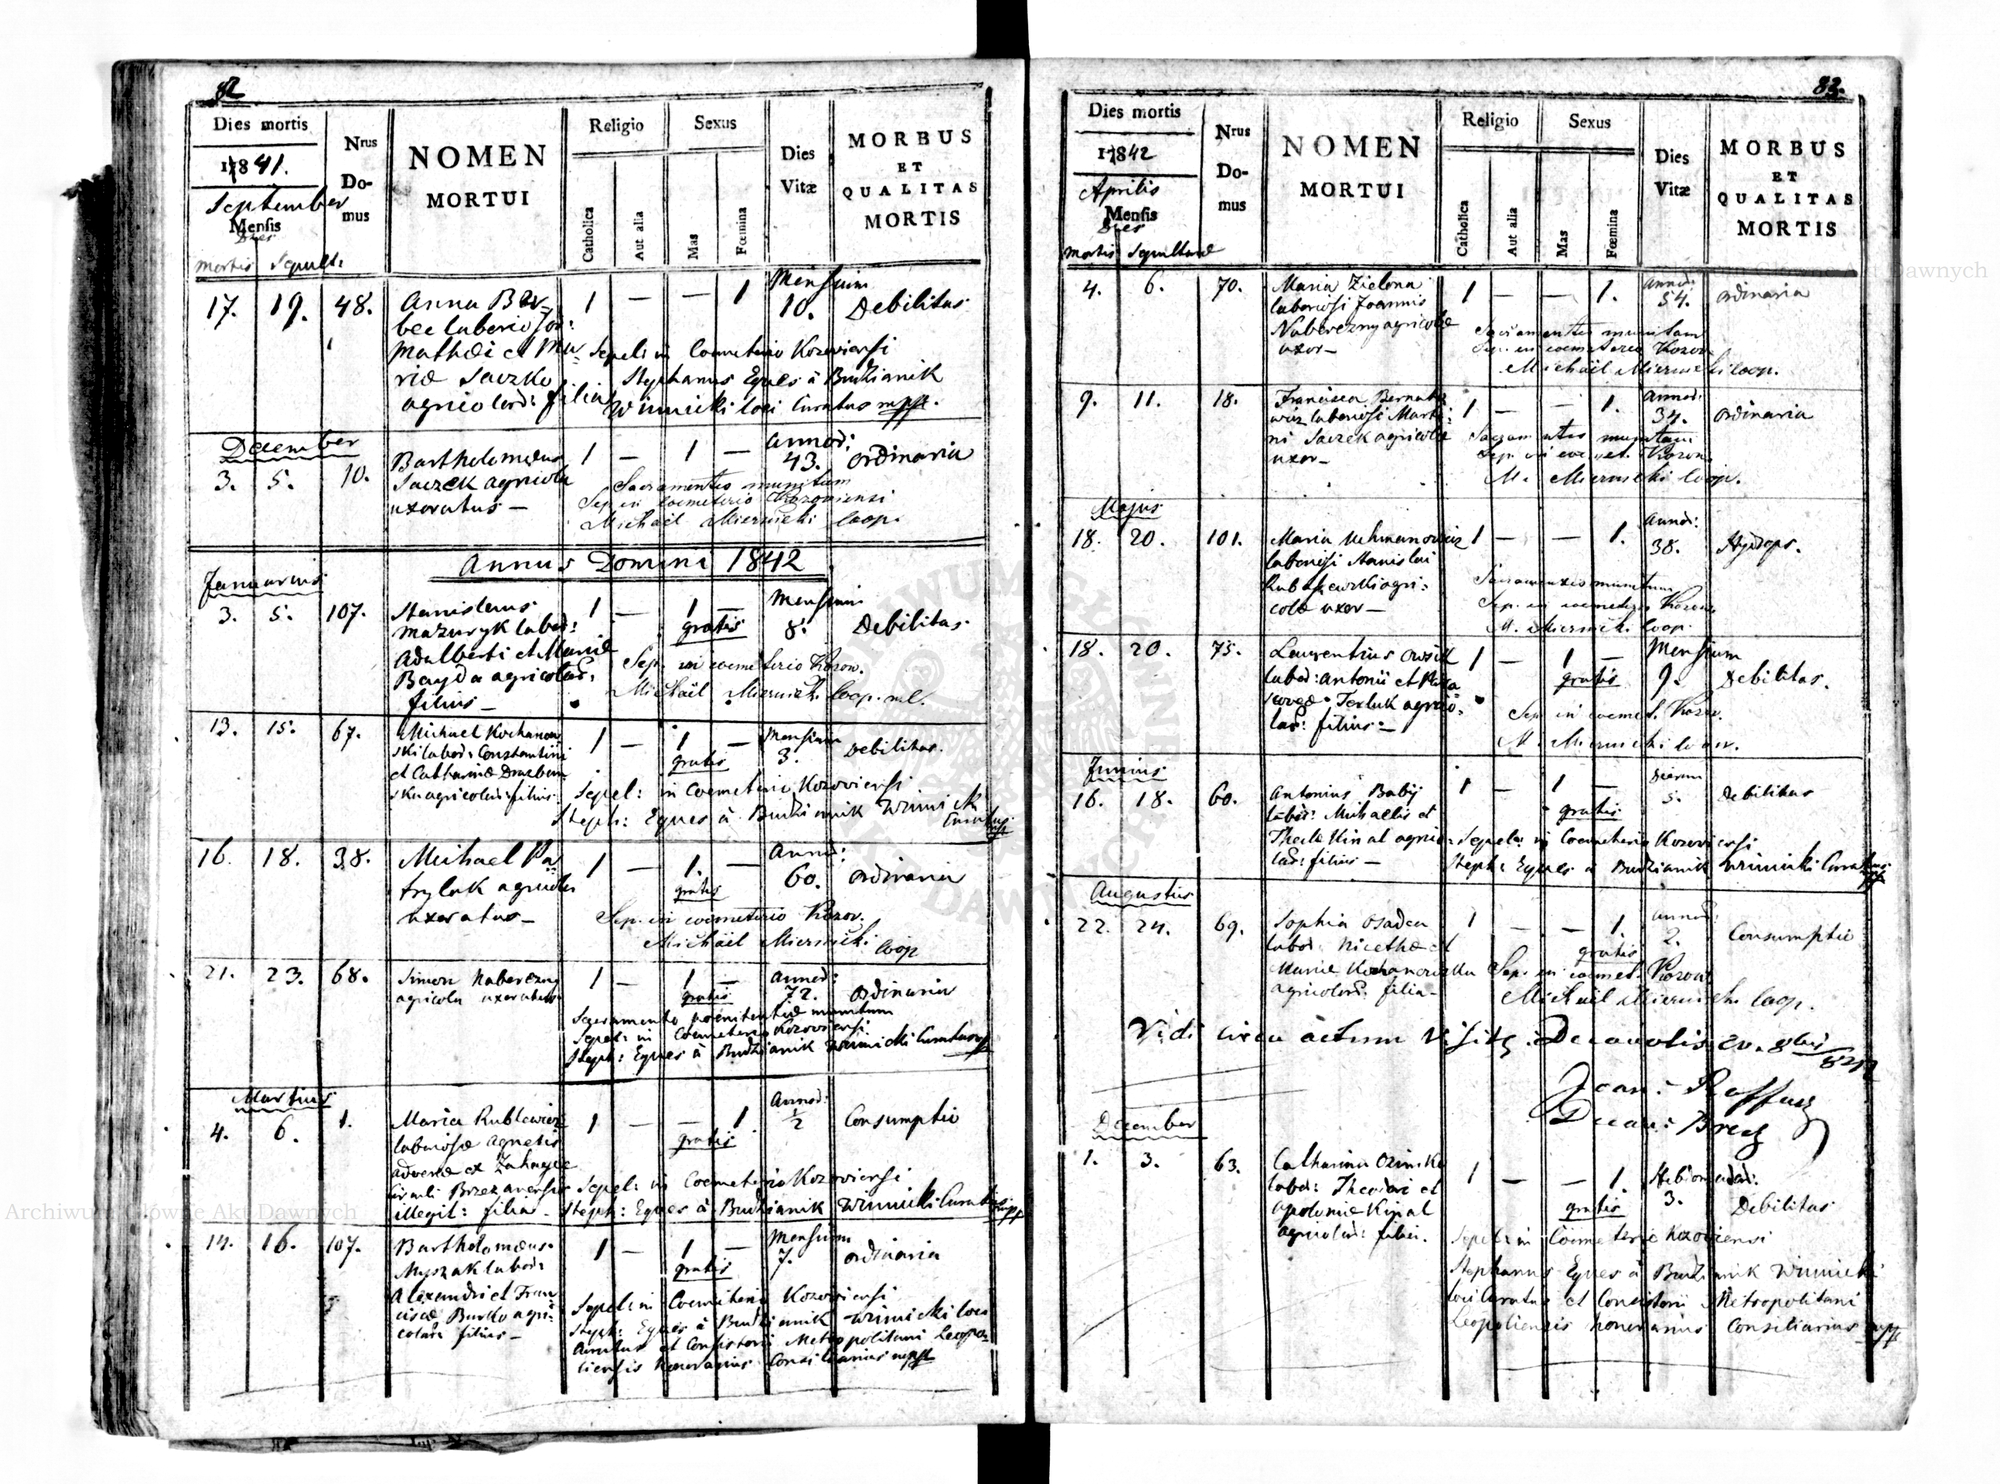 82
Dies mortis
1841.
September
Mensis
Dies
mortis Sepult:
Nrus
Do-
mus
NOMEN
MORTUI
Religio
Catholica
Aut alia
Sexus
Mas
Fœmina
Dies
Vitæ
MORBUS
ET
QUALITAS
MORTIS
17. 19. 48. Anna 1 — — 1 Mensium
10. Debilitas
Mathæi et Ma-
riæ Saczko
agricolar: filia
Sepel: in Coemeterio Kozoviensi
Stephanus Eques à Budzianik
Winnicki loci Curatus mpp.
December
3. 5. 10. Bartholomæus
Saczek agricola
uxoratus —
1 — 1 — Annor:
43. ordinaria
Sacramentis munitum
Sep. in coemeterio Kozoviensi
Michaël Miernicki Coop.
Annus Domini 1842
Januarius
3. 5. 107. Stanislaus
Mazuryk labor:
Adalberti et Mariæ
Bayda agricolar:
filius —
1 — 1 — Mensium
gratis 8. Debilitas.
Sep. in coemeterio Kozov.
Michaël Miernicki Coop.
13. 15. 67. Michael Kochanow
ski labor: Constantini
et Catharinæ
agricolar: filius.
1 — 1 — Mensium
gratis 3. Debilitas.
Sepel: in Coemeterio Kozoviensi
Steph: Eques à Budzianik Winnicki
Curatus mpp
16. 18. 38. Michael Pa
tryluk agricola
uxoratus —
1 — 1. — Annor:
gratis 60. ordinaria
Sep. in coemeterio Kozov.
Michaël Miernicki
Coop
21. 23. 68. Simon Naberezny
agricola uxoratus
1 — 1 — Annor:
gratis 72. ordinaria
Sacramento poenitentiæ munitum
Sepel: in Coemeterio Kozoviensi
Steph: Eques à Budzianik Winnicki Curatus mpp
Martius
4. 6. 1. Maria Kublewicz
laboriosæ Agnetis
advenæ ex
circuli Brzezanensis
illegit: filia —
1 — — 1 Annor:
gratis ½ Consumptio
Sepel: in Coemeterio Kozoviensi
Steph: Eques à Budzianik Winnicki Curatus mpp
14. 16. 107. Bartholomæus
Myszak labor:
Alexandri et Fran-
ciscæ Burko agri-
colar: filius —
1 — 1 — Mensium
gratis 7. ordinaria
Sepel: in Coemeterio Kozoviensi
Steph: Eques à Budzianik Winnicki loci
Curatus et Consistorii Metropolitani Leopo-
liensis honorarius Consiliarius mpp
83.
Dies mortis
1842
Aprilis
Mensis
Dies
mortis Sepulturæ
Nrus
Do-
mus
NOMEN
MORTUI
Religio
Catholica
Aut alia
Sexus
Mas
Fœmina
Dies
Vitæ
MORBUS
ET
QUALITAS
MORTIS
4. 6. 70. Maria Zielona
laboriosi Joannis
Naberezny agricolæ
uxor —
1 — — 1. Annor:
54. ordinaria
Sacramentis munitam
Sep. in coemeterio Kozov.
Michaël Miernicki Coop.
9. 11. 18. Francisca Bernate
wicz laboriosi Marti-
ni Saczek agricolæ
uxor —
1 — — 1. Annor:
34. ordinaria
Sacramentis munitam
Sep. in coemet. Kozov.
M. Miernicki Coop.
Majus
18. 20. 101. Maria
laboriosi Stanislai
agri-
colæ uxor —
1 — — 1. Annor:
38. Hydrops.
Sacramentis munitam
Sep. in coemeterio Kozov.
M. Miernicki Coop.
18. 20. 75. Laurentius
labor: Antonii et
Terluk agrico-
lar: filius —
1 — 1 — Mensium
gratis 9. Debilitas.
Sep. in coemet. Kozov.
M. Miernicki Coop.
Junius
16. 18. 60. Antonius Babij
labor: Michaelis et
Theclæ Kinal agrico-
lar: filius —
1 — 1 — Dierum
gratis 5. Debilitas
Sepel: in Coemeterio Kozoviensi
Steph: Eques à Budzianik Winnicki Curatus mpp
Augustus
22. 24. 69. Sophia Osadca
labor: Nicethæ et
Mariæ Kochanowska
agricolar: filia —
1 — — 1. Annor:
gratis 2. Consumptio
Sep. in coemet. Kozov.
Michaël Miernicki Coop.
Vidi circa actum Visitæ Decanalis
Decan: Brzez
December
1. 3. 63. Catharina
labor: Theodori et
Apoloniæ Kinal
agricolar: filia.
1 — — 1. Hebdomadar:
gratis 3. Debilitas
Sepel: in Coemeterio Kozoviensi
Stephanus Eques à Budzianik Winnicki
loci Curatus et Consistorii Metropolitani
Leopoliensis honorarius Consiliarius mpp
Archiwum Główne Akt Dawnych
Archiwum Główne Akt Dawnych
ARCHIWUM GŁÓWNE AKT DAWNYCH